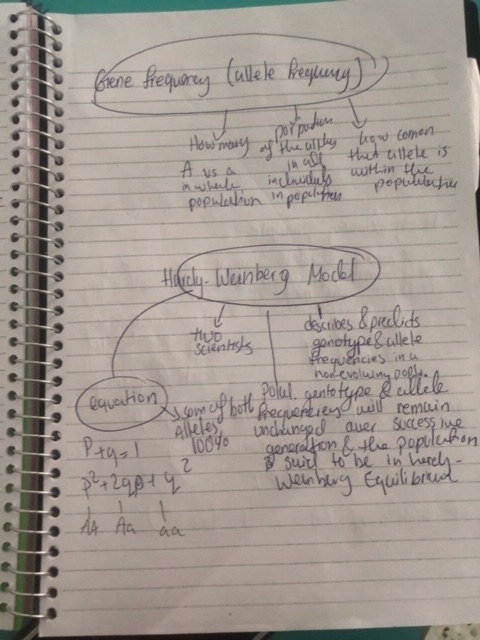 Gene frequency (allele frequency)
How many
A vs a
in whole
population
porpotion
of the alleles
in all
individuals
in populations
how comon
that allele is
within the
population
Hardy-Weinberg Model
two
scientists
describes & predicts
genotype & allele
frequencies in a
non-evolving popl.
equation
sum of both
Alleles
100%
P+q=1
p²+2qp+q²
AA Aa aa
genotype & allele
frequencies will remain
unchanged over successive
generation & the population
is said to be in hardy-
Weinberg Equilibrium